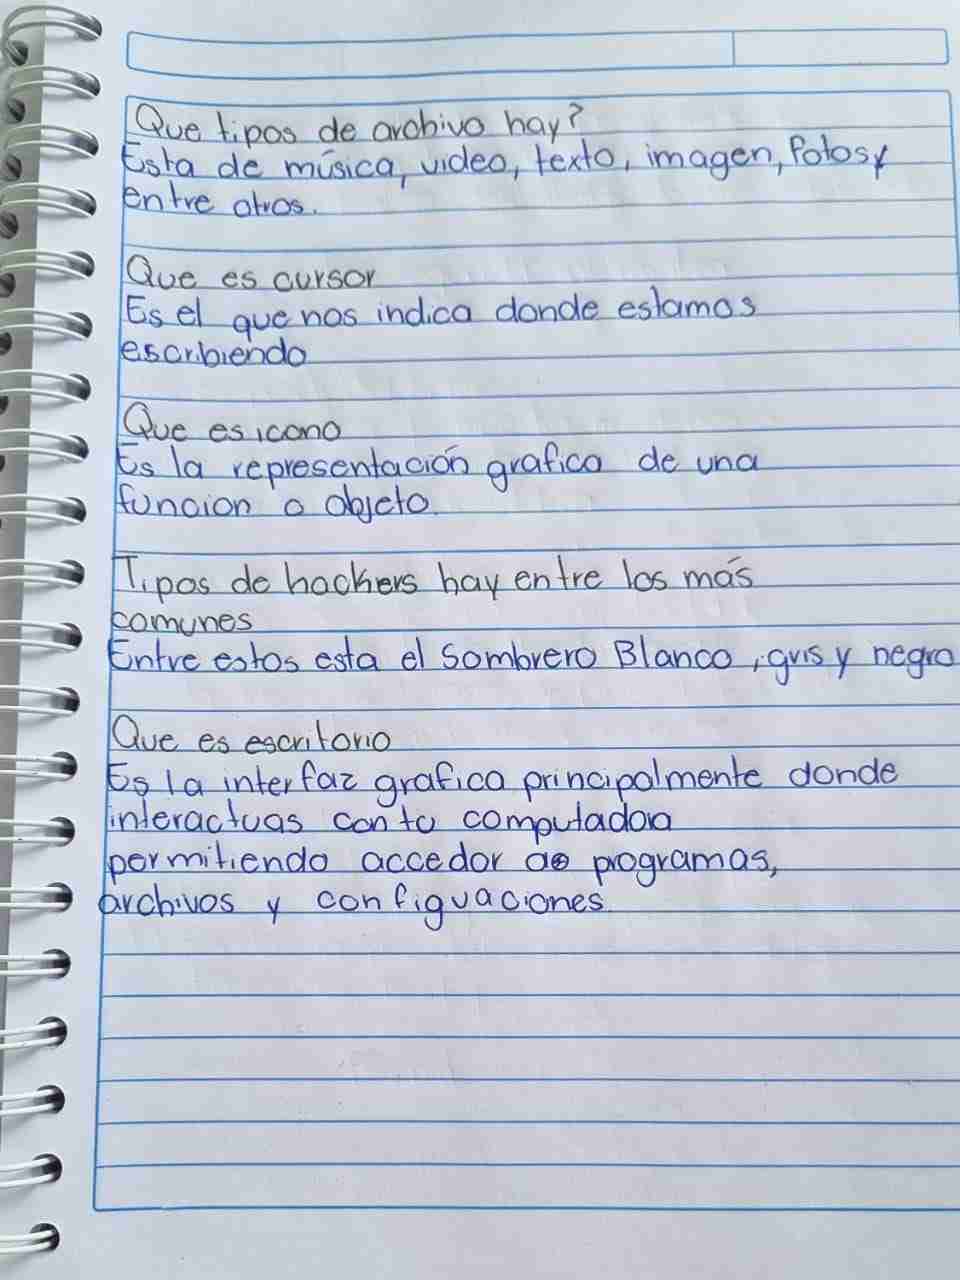 Que tipos de archivo hay?
Esta de música, video, texto, imagen, fotos y
entre otros.
Que es cursor
Es el que nos indica donde estamos
escribiendo
Que es icono
Es la representación grafica de una
funcion o objeto.
Tipos de hackers hay entre los más
comunes
Entre estos esta el Sombrero Blanco, gris y negro
Que es escritorio
Es la interfaz grafica principalmente donde
interactuas con tu computadora
permitiendo acceder a programas,
archivos y configuaciones.